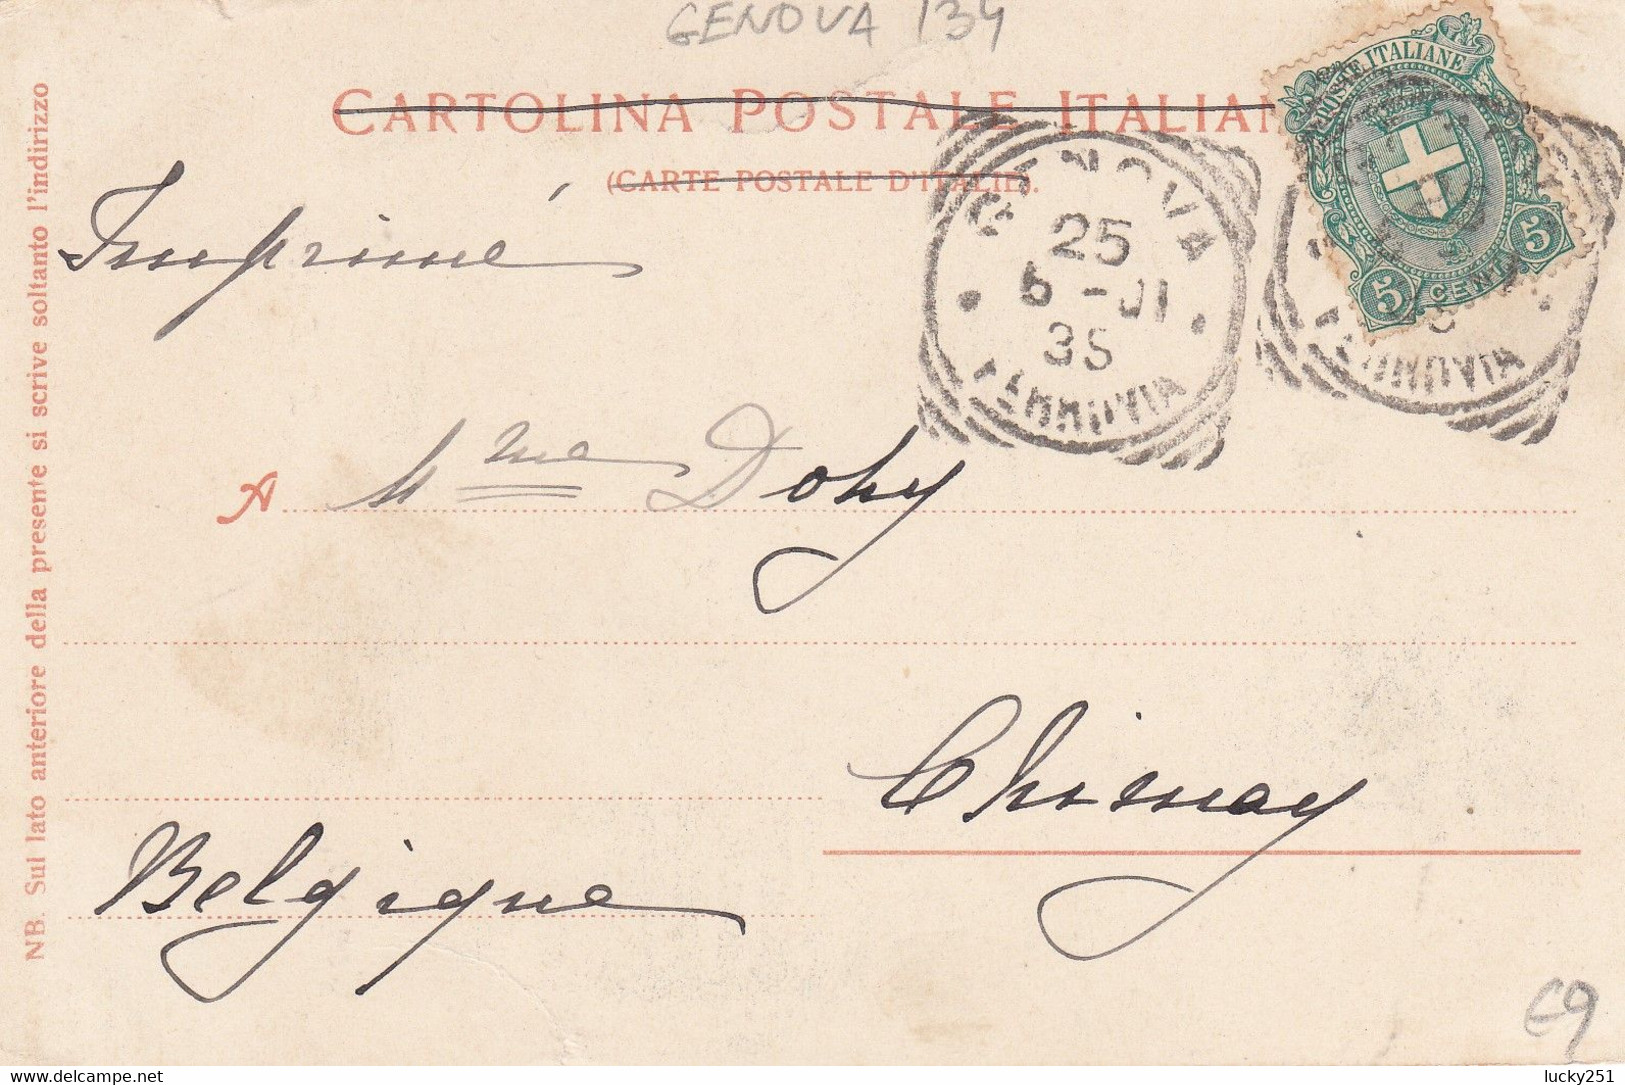 GENOVA 134
CARTOLINA POSTALE ITALIAN
(CARTE POSTALE D'ITALIE).
POSTE ITALIANE
5 CENT. 5
GENOVA
25
5 - 01
3S
FERROVIA
FERROVIA
Imprimé
A Mme Dohy
Chimay
Belgique
NB. Sul lato anteriore della presente si scrive soltanto l'indirizzo
€9
lucky251